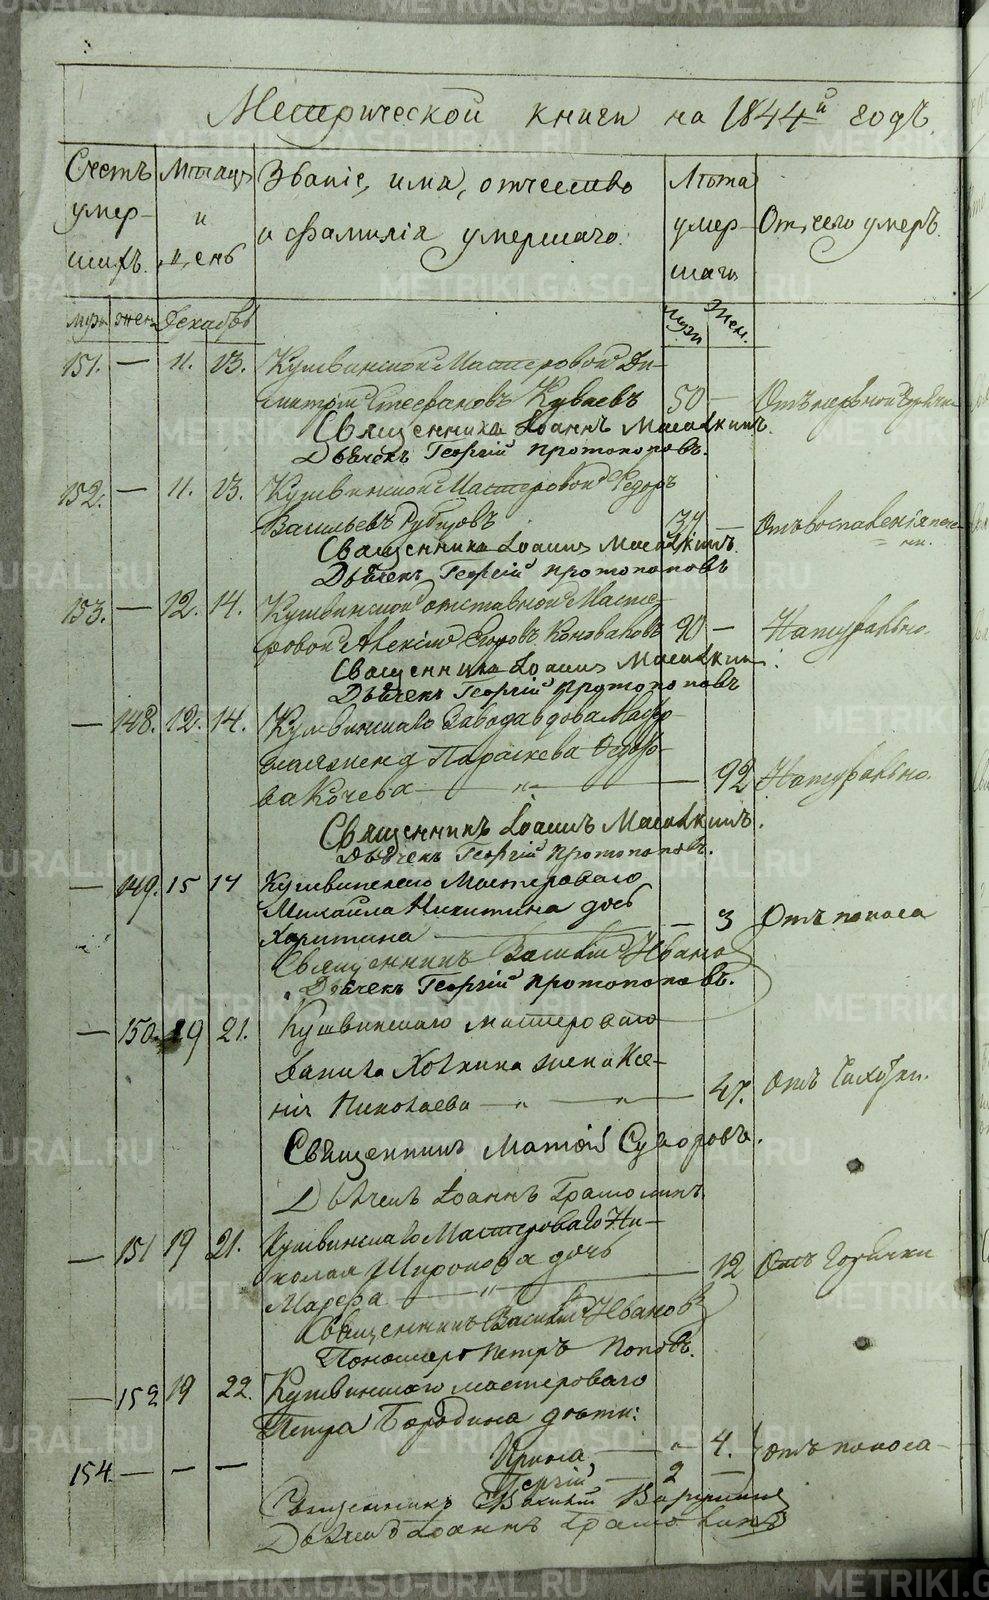 Метрической книги на 1844й годъ.
Счетъ умершихъ. Мѣсяцъ и день Званіе, имя, отчество и фамилія умершаго. Лѣта умершаго Отъ чего умеръ.
муж. жен. Декабрь Муж. Жен.
151. — 11. 13. Кушвинской Мастеровой Ди-
митрій Стефановъ Куваевъ 50 — Отъ нервной горячки
Священникъ Іоаннъ
Дьячекъ Георгій Протопоповъ.
152. — 11. 13. Кушвинской Мастеровой Федоръ
Васильевъ Рубцовъ — Отъ воспаленія пече-
ни.
Священникъ Іоаннъ
Дьячекъ Георгій Протопоповъ
153. — 12. 14. Кушвинской отставной Масте-
ровой Алексій Егоровъ Коноваловъ 90 — Натурально.
Священникъ Іоаннъ
Дьячекъ Георгій Протопоповъ
— 148. 12. 14. Кушвинскаго Завода вдова
Параскева
ва Кочева — „ — 92 Натурально.
Священникъ Іоаннъ
Дьячекъ Георгій Протопоповъ.
— 149. 15 17 Кушвинскаго Мастероваго
Михаила Никитина дочь
Харитина — — 3 Отъ поноса
Священникъ Василій Ивановъ
Дьячекъ Георгій Протопоповъ.
— 150. 19 21. Кушвинскаго мастероваго
Данила жена Ксе-
нія Николаева — „ — „ — 47. Отъ Чахотки.
Священникъ Матѳій Суворовъ.
Дьячекъ Іоаннъ
— 151 19 21. Кушвинскаго Мастероваго Ни-
колая Широкова дочь
Марфа — „ — 12 Отъ Горячки
Священникъ Василій Ивановъ
Пономарь Петръ Поповъ.
— 152 19 22. Кушвинскаго мастероваго
Петра Бородина дѣти:
Ирина, — „ 4. Отъ поноса —
154. — — — Георгій — 2 —
Священникъ Василій
Дьячекъ Іоаннъ
METRIKI.GASO-URAL.RU